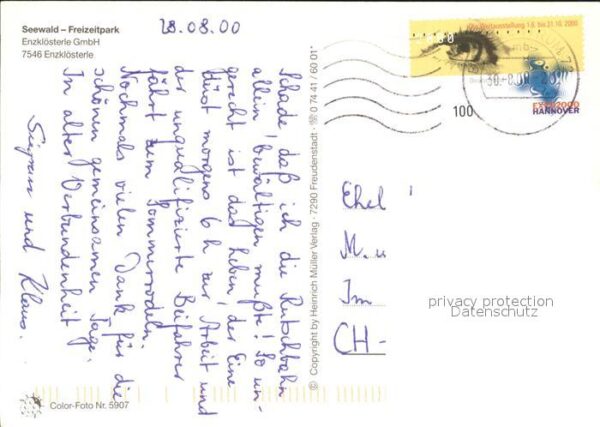 Seewald – Freizeitpark
Enzklösterle GmbH
7546 Enzklösterle
28.08.00
Schade, daß ich die Rutschbahn
allein bewältigen mußte! So un-
gerecht ist das Leben, der Eine
düst morgens 6 h zur Arbeit und
der unqualifizierte Beifahrer
fährt zum Sommerrodeln.
Nochmals vielen Dank für die
schönen gemeinsamen Tage.
In alter Verbundenheit
Sigrun und Klaus.
© Copyright by Heinrich Müller Verlag · 7290 Freudenstadt · ☏ 0 74 41 / 60 01*
Weltausstellung 1.6. bis 31.10. 2000
100
EXPO2000
HANNOVER
Ehel
M. u
Im
CH-
privacy protection
Datenschutz
Color-Foto Nr. 5907